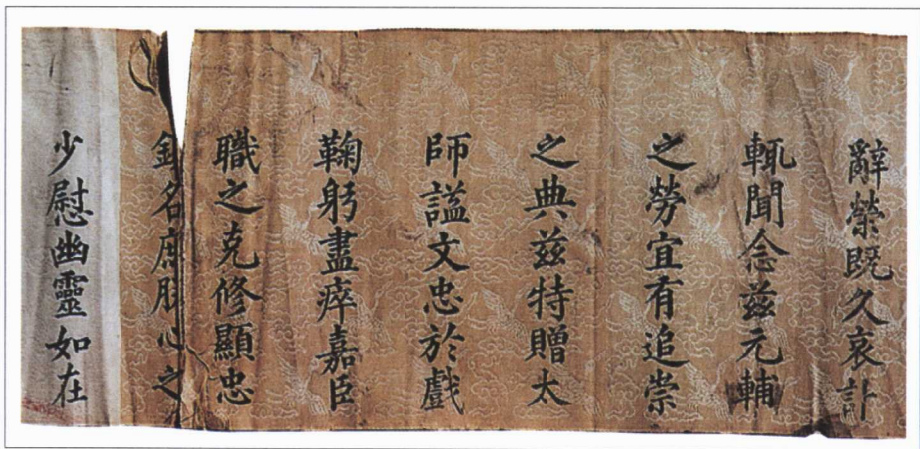 辭榮既久哀訃
輒聞念茲元輔
之勞宜有追崇
之典茲特贈太
師謚文忠於戲
鞠躬盡瘁嘉臣
職之克修顯忠
名庶 心之
少慰幽靈如在